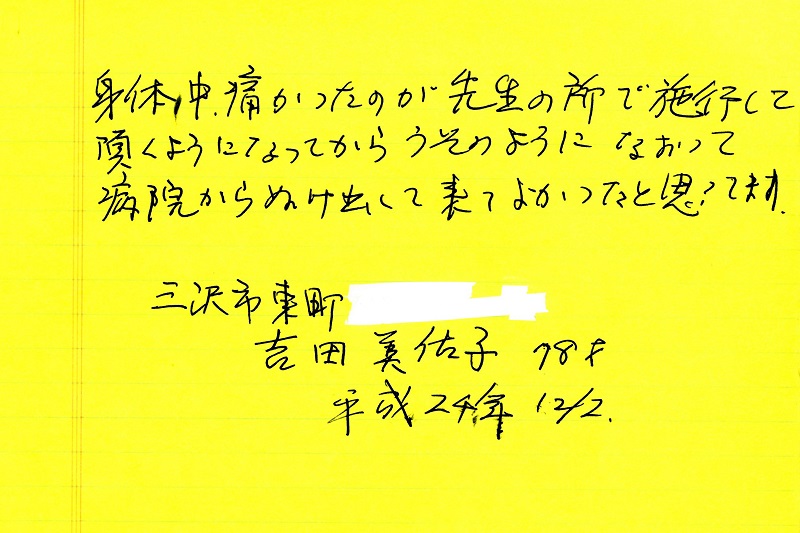 身体中、痛かったのが先生の所で施行して
頂くようになってからうそのようになおって
病院からぬけ出して来てよかったと思ってます.
三沢市東町
吉田美佑子 78才
平成24年 12/2.